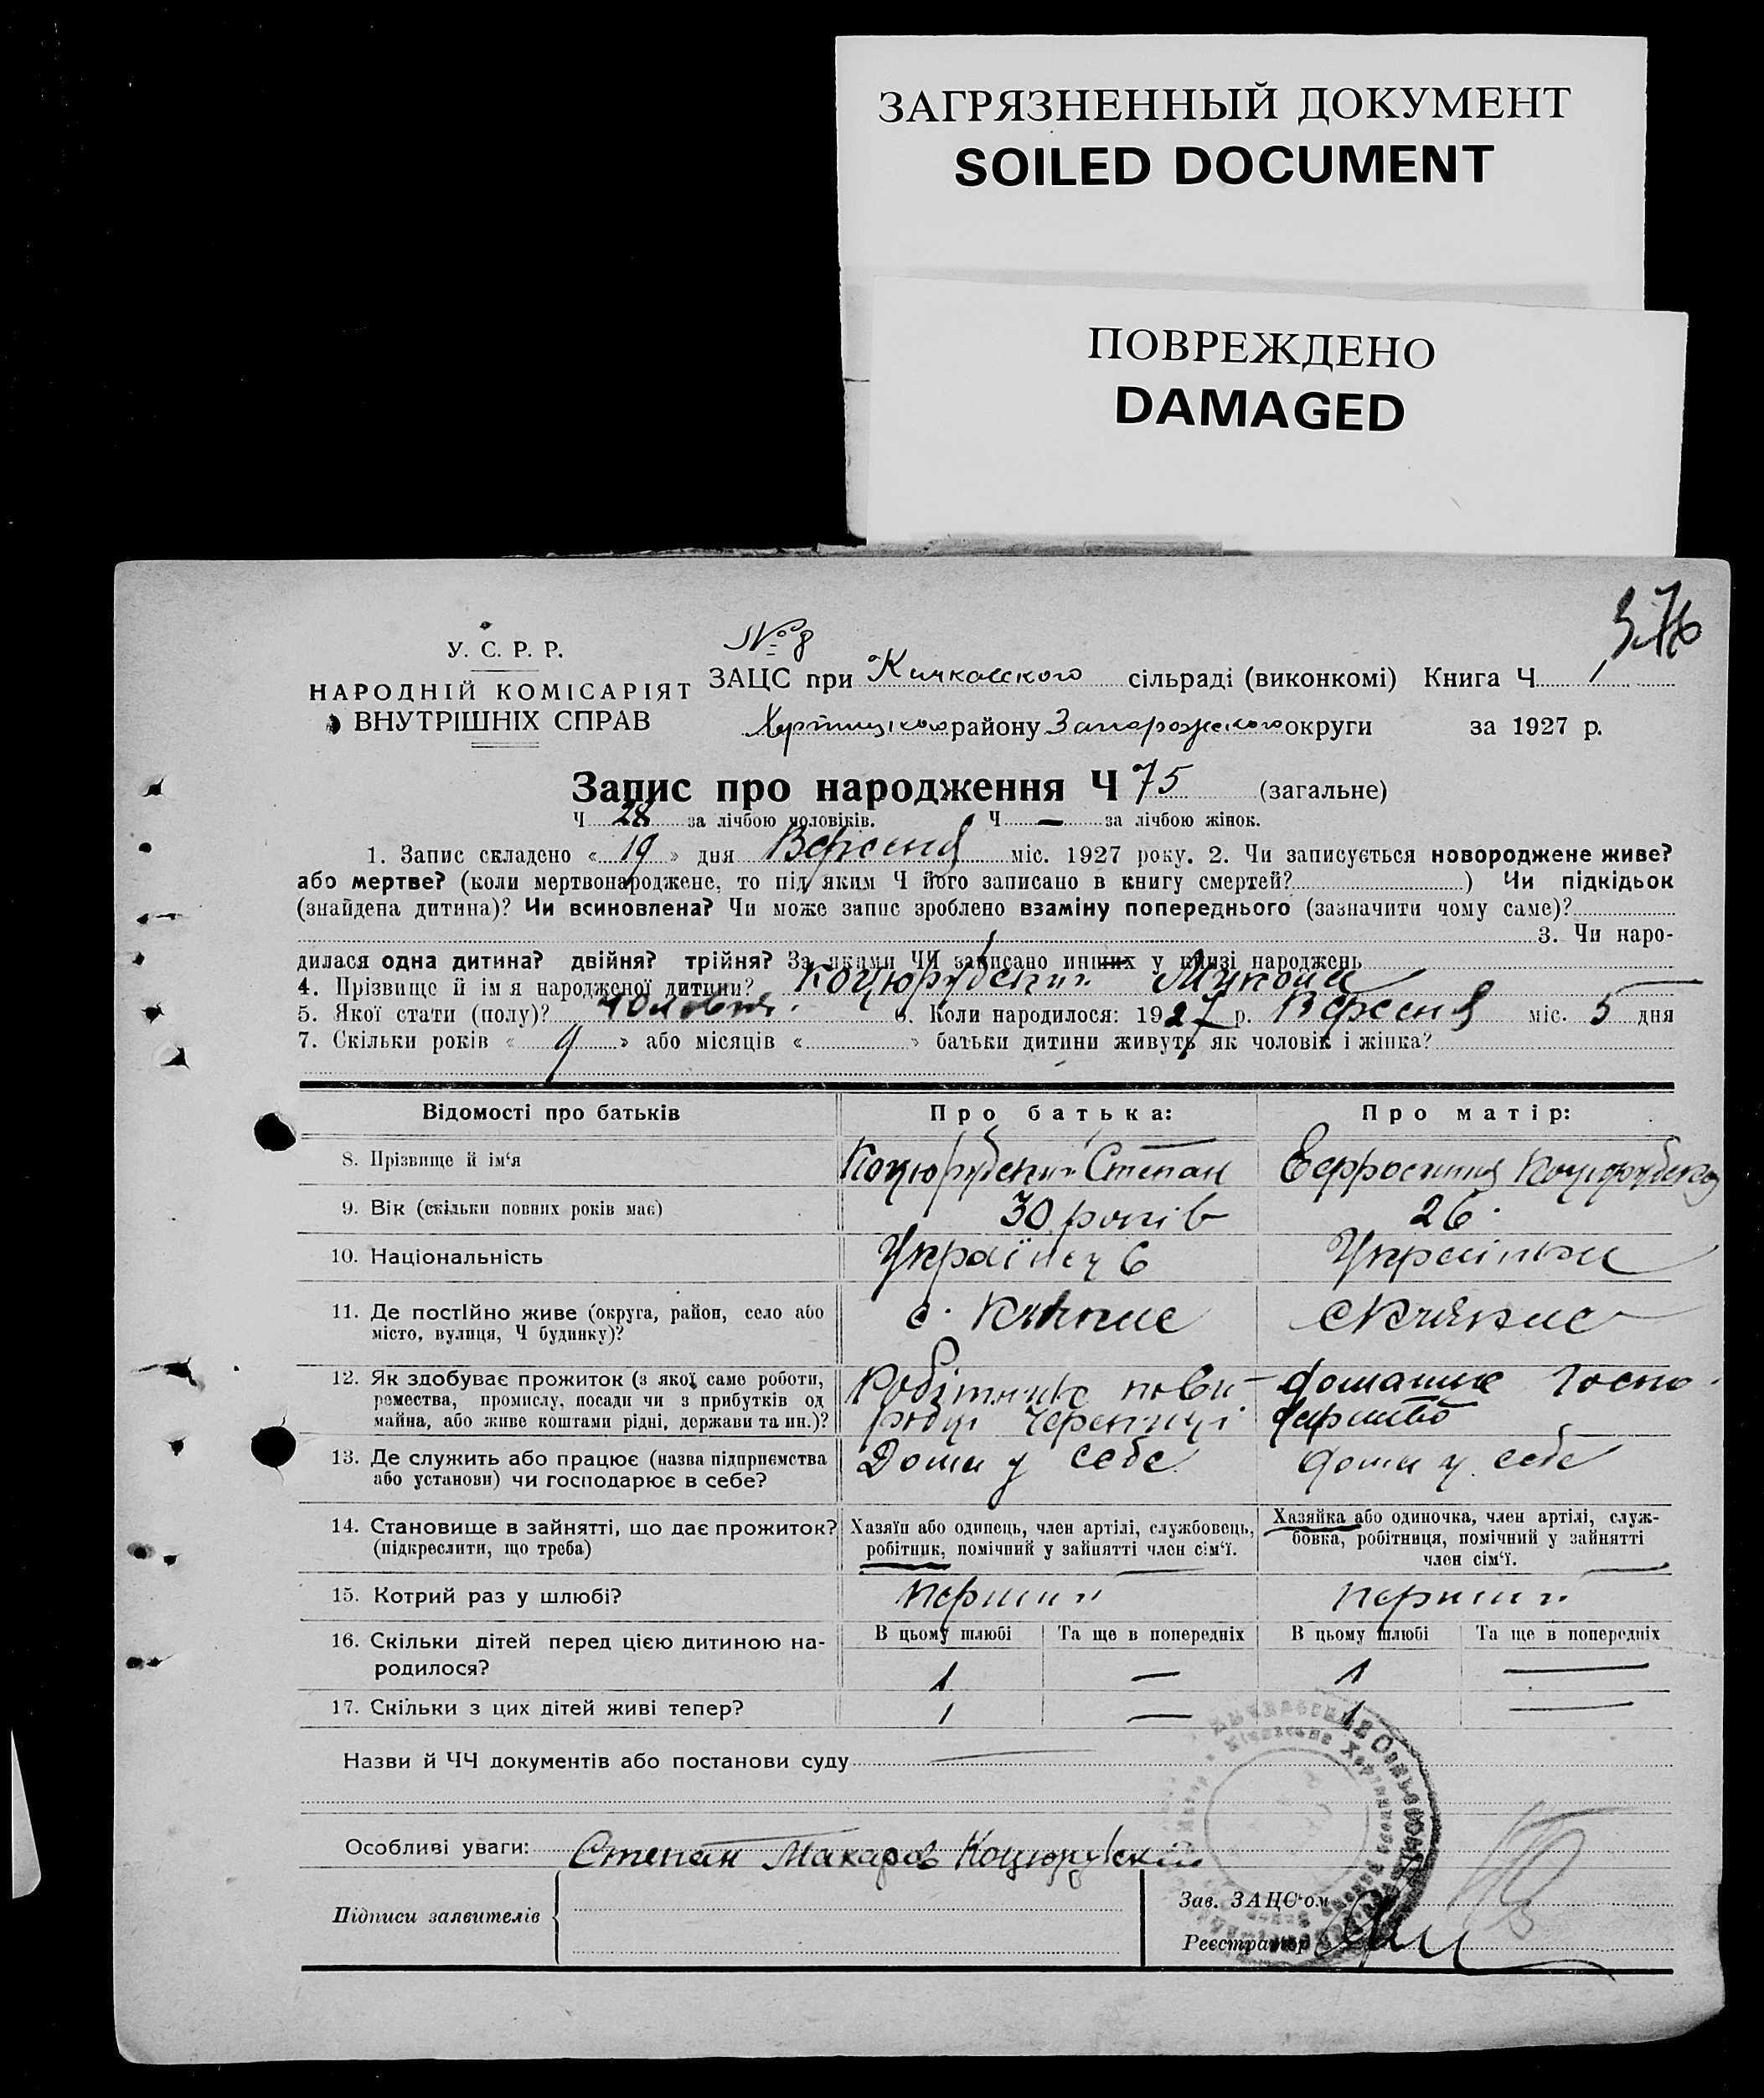 ЗАГРЯЗНЕННЫЙ ДОКУМЕНТ
SOILED DOCUMENT
ПОВРЕЖДЕНО
DAMAGED
376
У. С. Р. Р.
НАРОДНІЙ КОМІСАРІЯТ
ВНУТРІШНІХ СПРАВ
№ 8
ЗАЦС при Кичкасского сільраді (виконкомі) Книга Ч 1
Хортицького району Запорожского округи за 1927 р.
Запис про народження Ч 75 (загальне)
Ч 28 за лічбою чоловіків. Ч — за лічбою жінок.
1. Запис складено « 19 » дня Вересня міс. 1927 року. 2. Чи записується новороджене живе?
або мертве? (коли мертвонароджене, то під яким Ч його записано в книгу смертей? ) Чи підкідьок
(знайдена дитина)? Чи всиновлена? Чи може запис зроблено взаміну попереднього (зазначити чому саме)?
3. Чи наро-
дилася одна дитина? двійня? трійня? За якими ЧЧ записано инших у книзі народжень
4. Прізвище й ім я народженої дитини? Коцюрубский Микола
5. Якої стати (полу)? Чоловіча. 6. Коли народилося: 1927 р. Вересня міс. 5 дня
7. Скільки років « 9 » або місяців « » батьки дитини живуть як чоловік і жінка?
Відомості про батьків Про батька: Про матір:
8. Прізвище й ім‘я Коцюрубский Степан Ефросиния Коцюрубска
9. Вік (скільки повних років має) 30 років 26
10. Національність Українець Українка
11. Де постійно живе (округа, район, село або с. Кичкас с Кичкас
місто, вулиця, Ч будинку)?
12. Як здобуває прожиток (з якої саме роботи, Робітник домашнє Госпо-
ремества, промислу, посади чи з прибутків од дарство
майна, або живе коштами рідні, держави та ин.)?
13. Де служить або працює (назва підприємства Дома у себе дома у себе
або установи) чи господарює в себе?
14. Становище в зайнятті, що дає прожиток? Хазяїн або одинець, член артілі, службовець, Хазяйка або одиночка, член артілі, служ-
(підкреслити, що треба) робітник, помічний у зайнятті член сім‘ї. бовка, робітниця, помічний у зайнятті
член сім‘ї.
15. Котрий раз у шлюбі? Перший Перший
16. Скільки дітей перед цією дитиною на- В цьому шлюбі Та ще в попередніх В цьому шлюбі Та ще в попередніх
родилося? 1 — 1 —
17. Скільки з цих дітей живі тепер? 1 — 1 —
Назви й ЧЧ документів або постанови суду —
Особливі уваги: Степан Макаров Коцюрубский
Підписи заявителів
Зав. ЗАЦС‘ом
Реєстратор